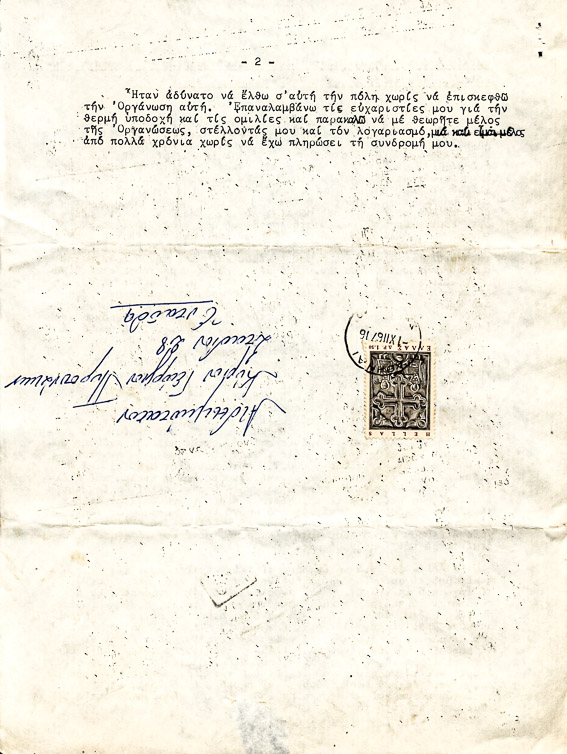 - 2 -
Ἦταν ἀδύνατο νά ἔλθω σ'αὐτή τήν πόλη χωρίς νά ἐπισκεφθῶ
τήν Ὀργάνωση αὐτή. Ἐπαναλαμβάνω τίς εὐχαριστίες μου γιά τήν
θερμή ὑποδοχή καί τίς ὁμιλίες καί παρακαλῶ νά μέ θεωρῆτε μέλος
τῆς Ὀργανώσεως, στέλλοντάς μου καί τόν λογαριασμό, μιά καί εἶμαι μέλος
ἀπό πολλά χρόνια χωρίς νά ἔχω πληρώσει τή συνδρομή μου.
Κύριον Γεώργιον
28
Ἐνταῦθα
1 XII 67 16
ΕΛΛΑΣ
HELLAS